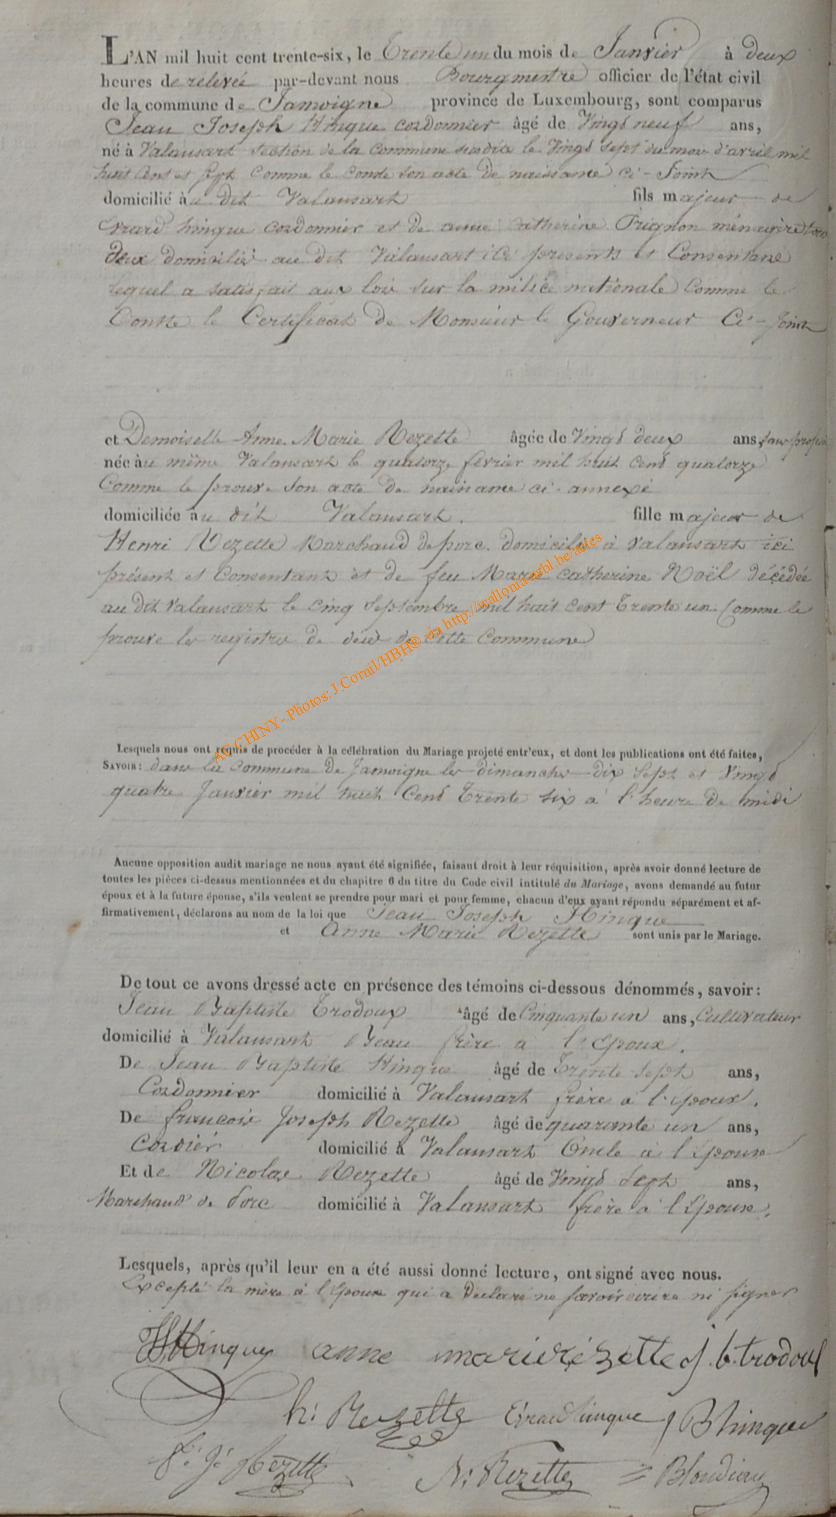 L'AN mil huit cent trente-six, le Trente un du mois de Janvier à deux
heures de relevée par-devant nous Bourgmestre officier de l'état civil
de la commune de Jamoigne province de Luxembourg, sont comparus
Jean Joseph Hinque cordonnier âgé de Vingt neuf ans,
né à Valansart section de la commune susdite le Vingt Sept du mois d'avril mil
huit Cent et Sept Comme le conste son acte de naissance Ci-Joint
domicilié au dit Valansart fils majeur de
Evrard hinque cordonnier et de anne catherine Frignon ménagère tous
deux domiciliés au dit Valansart ici présents et Consentans
lequel a satisfait aux lois sur la milice nationale Comme le
Conste le Certificat de Monsieur le Gouverneur Ci-Joint
et Demoiselle Anne Marie Rezette âgée de Vingt deux ans, sans profession
née au même Valansart le quatorze février mil huit Cent quatorze
Comme le prouve Son acte de naissance ci-annexé
domiciliée au dit Valansart. fille majeure de
Henri Rezette Marchand de porc domicilié à Valansart ici
présent et Consentant et de feu Marie Catherine Noël décédée
au dit Valansart le cinq Septembre mil huit cent Trente un Comme le
prouve les registres de décès de cette Commune
AE CHINY - Photos:J.Cornil/HBH© via http://wallonia.asbl.be/actes
Lesquels nous ont requis de procéder à la célébration du Mariage projeté entr'eux, et dont les publications ont été faites,
SAVOIR: dans la Commune de Jamoigne les dimanches dix Sept et Vingt
quatre Janvier mil huit Cent Trente six à l'heure de midi
Aucune opposition audit mariage ne nous ayant été signifiée, faisant droit à leur réquisition, après avoir donné lecture de
toutes les pièces ci-dessus mentionnées et du chapitre 6 du titre du Code civil intitulé du Mariage, avons demandé au futur
époux et à la future épouse, s'ils veulent se prendre pour mari et pour femme, chacun d'eux ayant répondu séparément et af-
firmativement, déclarons au nom de la loi que Jean Joseph Hinque
et Anne Marie Rezette sont unis par le Mariage.
De tout ce avons dressé acte en présence des témoins ci-dessous dénommés, savoir:
Jean Baptiste Trodoux âgé de Cinquante un ans, Cultivateur
domicilié à Valansart Beau frère à l'Epoux.
De Jean Baptiste Hinque âgé de Trente Sept ans,
Cordonnier domicilié à Valansart frère à l'époux.
De françois Joseph Rezette âgé de quarante un ans,
Cordier domicilié à Valansart Oncle à l'Epouse
Et de Nicolas Rezette âgé de Vingt Sept ans,
Marchand de Porc domicilié à Valansart frère à l'Epouse.
Lesquels, après qu'il leur en a été aussi donné lecture, ont signé avec nous.
Excepté la mère à l'Epoux qui a Déclaré ne savoir écrire ni signer
JJHinque anne marie rézette j. b. trodoux
h: Rezette Evrard hinque J B hinque
F: J: Rezette N: Rezette Blondiau